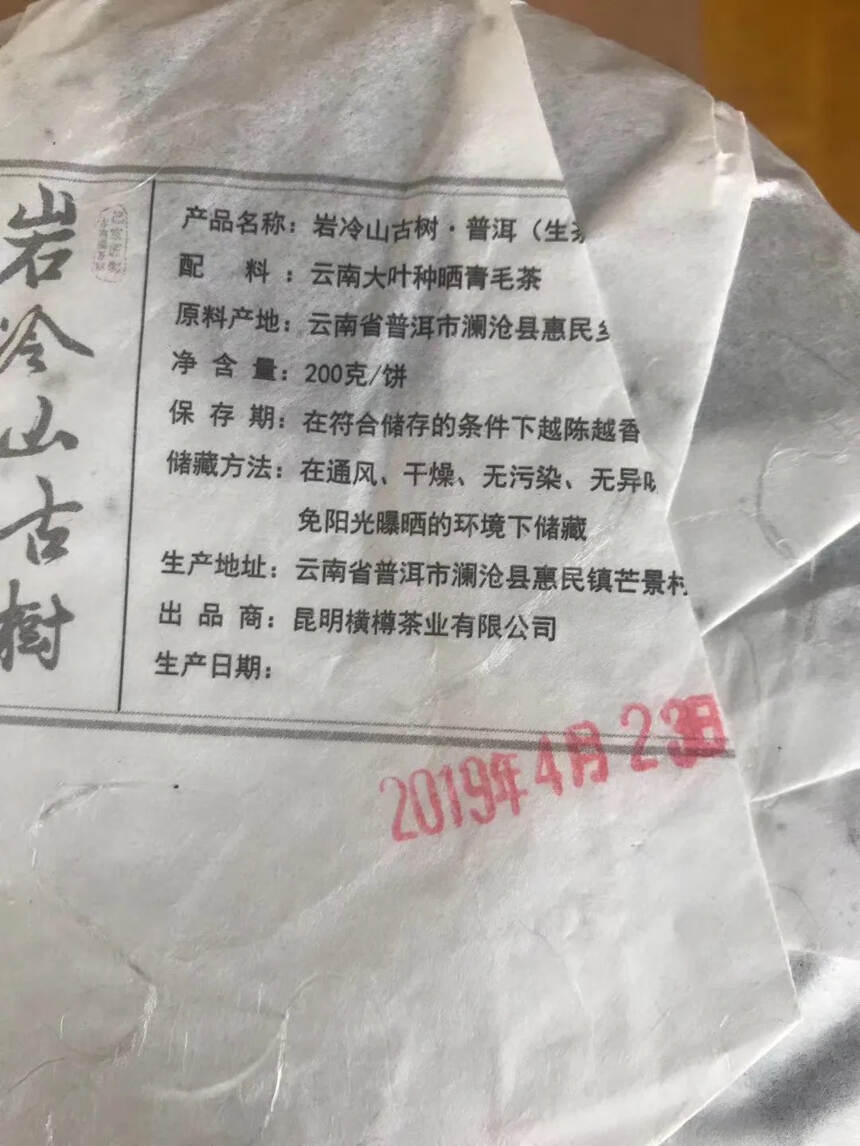 岩冷山古樹
产品名称：岩冷山古树·普洱（生茶
配 料：云南大叶种晒青毛茶
原料产地：云南省普洱市澜沧县惠民乡
净含量：200克/饼
保存期：在符合储存的条件下越陈越香
储藏方法：在通风、干燥、无污染、无异味
免阳光曝晒的环境下储藏
生产地址：云南省普洱市澜沧县惠民镇芒景村
出品商：昆明横樽茶业有限公司
生产日期：
2019年4月23日